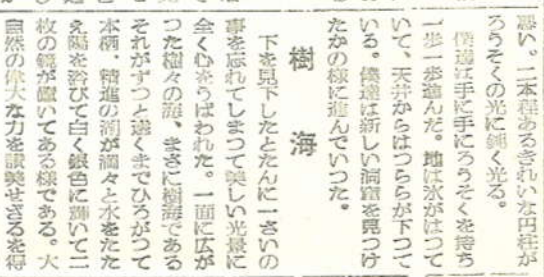 悪い。二本程あるきれいな円柱が
ろうそくの光に鈍く光る。
僕達は手に手にろうそくを持ち
一歩一歩進んだ。地は氷がはつて
いて、天井からはつららが下つて
いる。僕達は新しい洞窟を見つけ
たかの様に進んでいつた。
樹海
下を見下したとたんに一さいの
事を忘れてしまつて美しい光景に
全く心をうばわれた。一面に広が
つた樹々の海、まさに樹海である
それがずつと遠くまでひろがつて
本栖、精進の湖が満々と水をたた
え陽を浴びて白く銀色に輝いて二
枚の鏡が置いてある様である。大
自然の偉大な力を讃美せざるを得